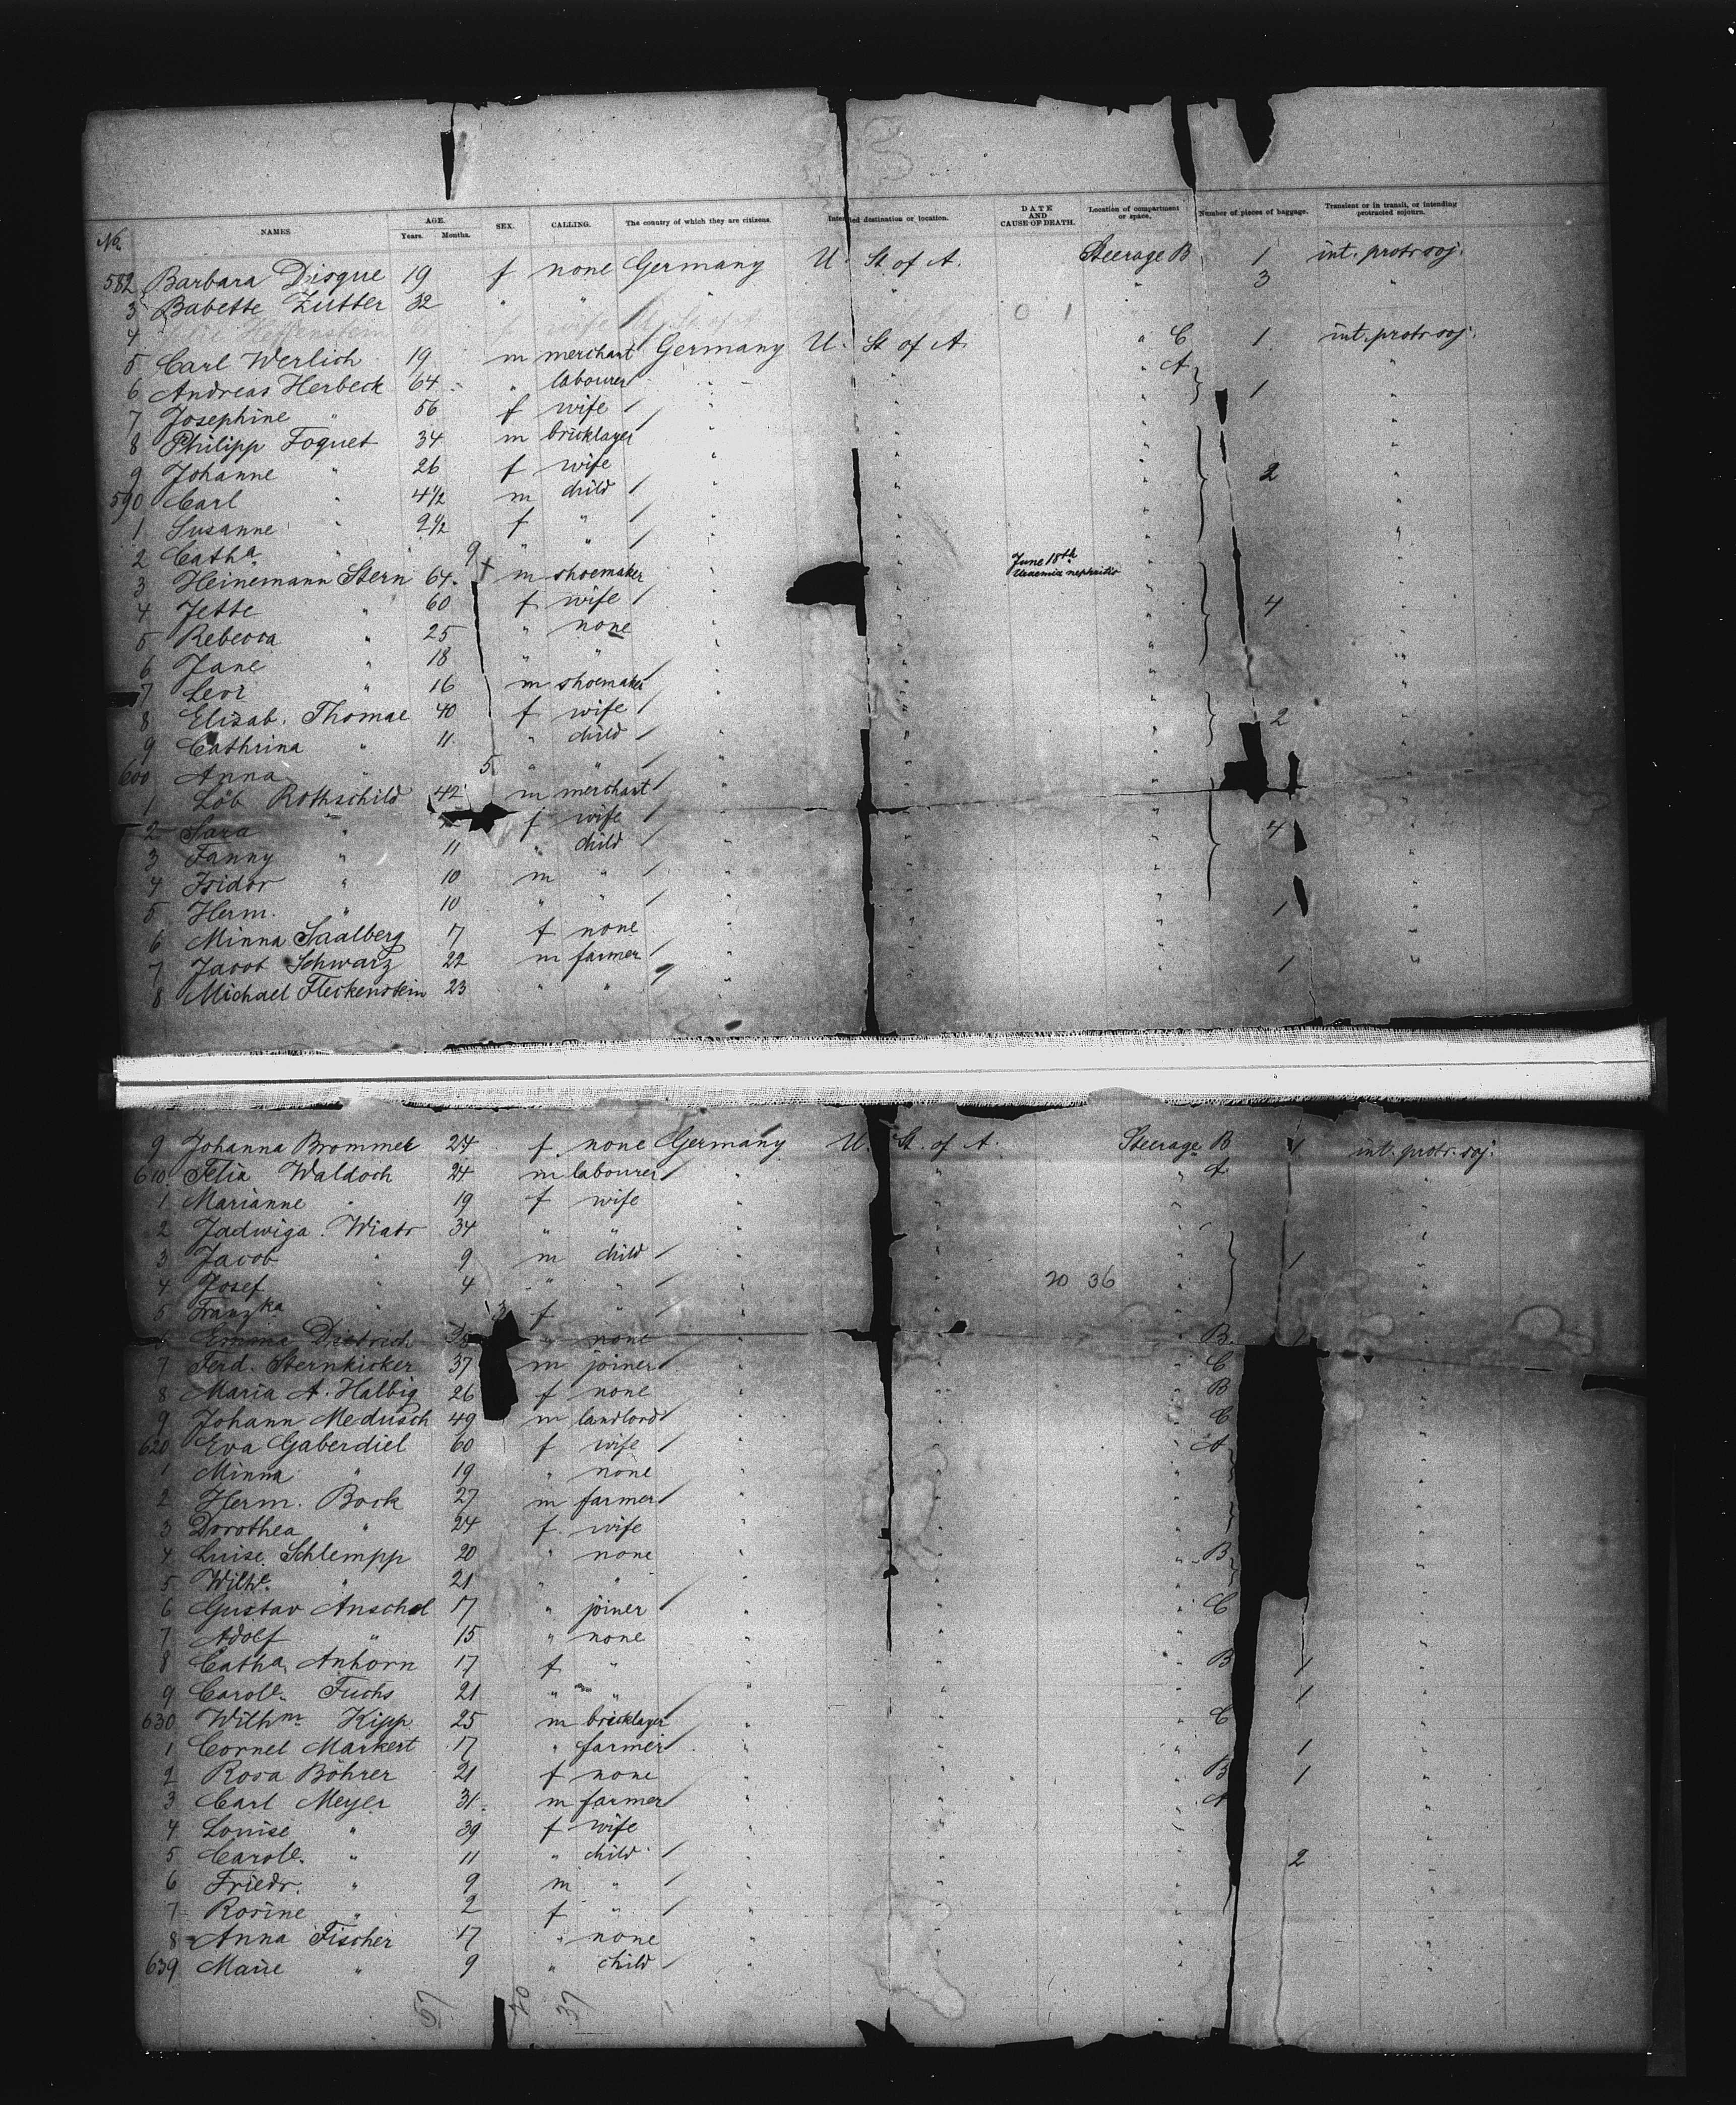 No. NAMES. AGE. Years. Months. SEX. CALLING. The country of which they are citizens. Intended destination or location. DATE AND CAUSE OF DEATH. Location of compartment or space. Number of pieces of baggage. Transient or in transit, or intending protracted sojourn.
582 Barbara Disque 19 f none Germany U. St. of A. Steerage B 1 int. protr. soj.
3 Babette Zutter 32 " " " " " 3 "
4 wife U. St. of A. 0 1
5 Carl Werlich 19 m merchant Germany U. St. of A. " C 1 int. protr. soj.
6 Andreas Herbeck 64 " labourer " " " A "
7 Josephine " 56 f wife / " " " 1 "
8 Philipp Foquet 34 m bricklayer " " " "
9 Johanne " 26 f wife " " " "
590 Carl " 4 1/2 m child / " " " 2 "
1 Susanne " 2 1/2 f " / " " " "
2 Catha " 9 " " / " " " "
3 Heinemann Stern 64 + m shoemaker " " June 18th Uraemia nephritis " "
4 Jette " 60 f wife / " " " 4 "
5 Rebecca " 25 " none " " " "
6 Jane " 18 " " " " " "
7 Leor " 16 m shoemaker / " " " "
8 Elisab. Thomae 40 f wife / " " " "
9 Cathrina " 11 " child / " " " 2 "
600 Anna " 5 " " / " " " "
1 Löb Rothschild 42 m merchant / " " " "
2 Sara " f wife / " " " "
3 Fanny " 11 " child / " " " 4 "
4 Isidor " 10 m " / " " " "
5 Herm. " 10 " " / " " " "
6 Minna Saalberg 17 f none " " " 1 "
7 Jacob Schwarz 22 m farmer / " " " "
8 Michael Fleckenstein 23 " " " " " 1 "
9 Johanna Brommer 24 f none Germany U. St. of A. Steerage B 1 int. protr. soj.
610 Felia Waldoch 24 m labourer / " " " A "
1 Marianne " 19 f wife " " " "
2 Jadwiga Wiatr 34 " " " " " "
3 Jacob " 9 m child / " " " 1 "
4 Josef " 4 " " / " " 20 36 " "
5 Franzka " 3 f " / " " " "
6 Emma Dietrich " none " " B. 1 "
7 Ferd. Sternkicker 37 m joiner / " " " C "
8 Maria A. Halbig 26 f none " " " B "
9 Johann Medusch 49 m landlord / " " " C "
620 Eva Gaberdiel 60 f wife / " " " A "
1 Minna " 19 " none " " " "
2 Herm. Bock 27 m farmer / " " " "
3 Dorothea " 24 f wife " " " "
4 Luise Schlempp 20 " none " " " B "
5 Wilhe. " 21 " " " " " "
6 Gustav Anschel 17 " joiner / " " " C "
7 Adolf " 15 " none " " " "
8 Catha. Anhorn 17 f " " " " B 1 "
9 Carole. Fuchs 21 " " " " " 1 "
630 Wilhm. Kipp 25 m bricklayer " " " C "
1 Cornel Markert 17 " farmer / " " " 1 "
2 Rosa Böhrer 21 f none " " " B 1 "
3 Carl Meyer 31 m farmer / " " " A "
4 Louise " 39 f wife " " " "
5 Carole. " 11 " child / " " " 2 "
6 Friedr. " 9 m " / " " " "
7 Rosine " 2 f " / " " " "
8 Anna Fischer 17 " none " " " "
639 Marie " 9 " child / " " " "
57 20 37